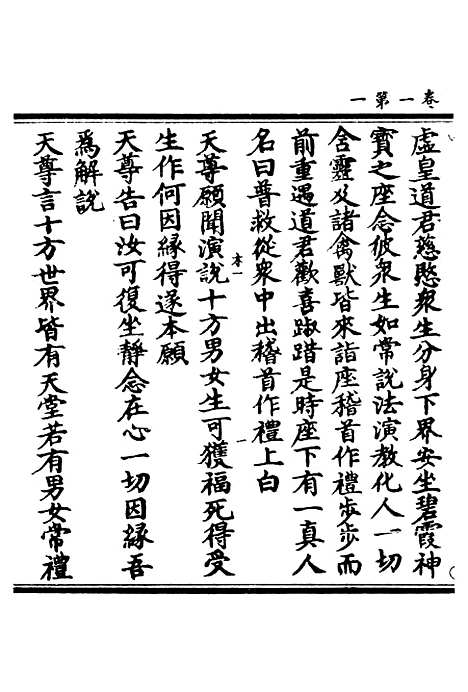 卷一第一
虛皇道君慈愍衆生分身下界安坐碧霞神
寶之座念彼衆生如常說法演教化人一切
含靈及諸禽獸皆來詣座稽首作禮步步而
前重遇道君歡喜踧踖是時座下有一真人
名曰普救從衆中出稽首作禮上白
天尊願聞演說十方男女生可獲福死得受
本一
生作何因緣得遂本願
天尊告曰汝可復坐靜念在心一切因緣吾
爲解說
天尊言十方世界皆有天堂若有男女常禮